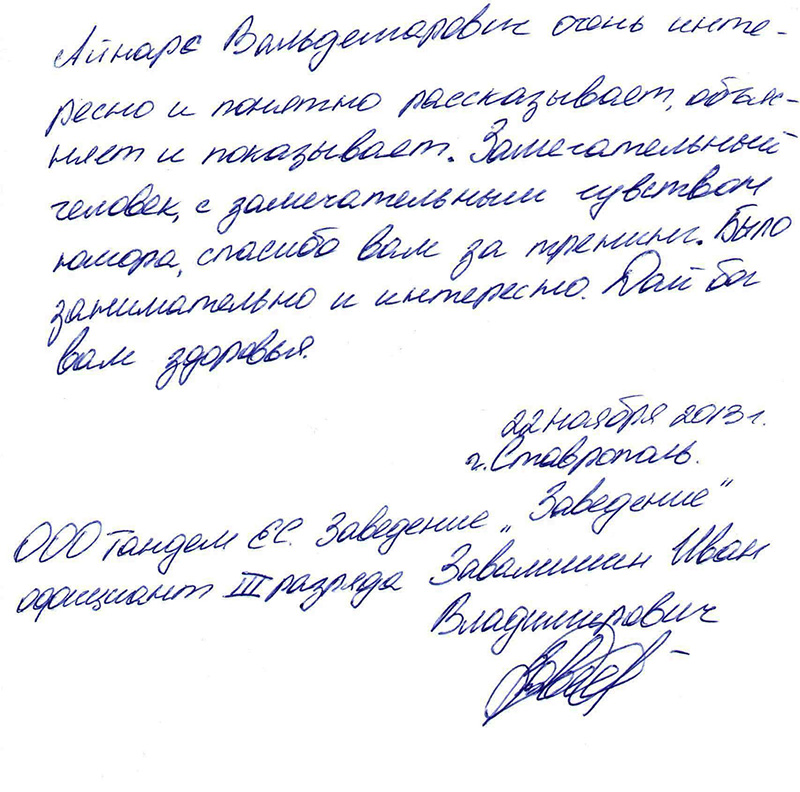 Айнарс Вальдемарович очень инте-
ресно и понятно рассказывает, объяс-
няет и показывает. Замечательный
человек, с замечательным чувством
юмора, спасибо вам за тренинг. Было
занимательно и интересно. Дай бог
вам здоровья.
22 ноября 2013 г.
г. Ставрополь.
ООО Тандем ЕС. Заведение „Заведение“
официант III разряда Завалишин Иван
Владимирович